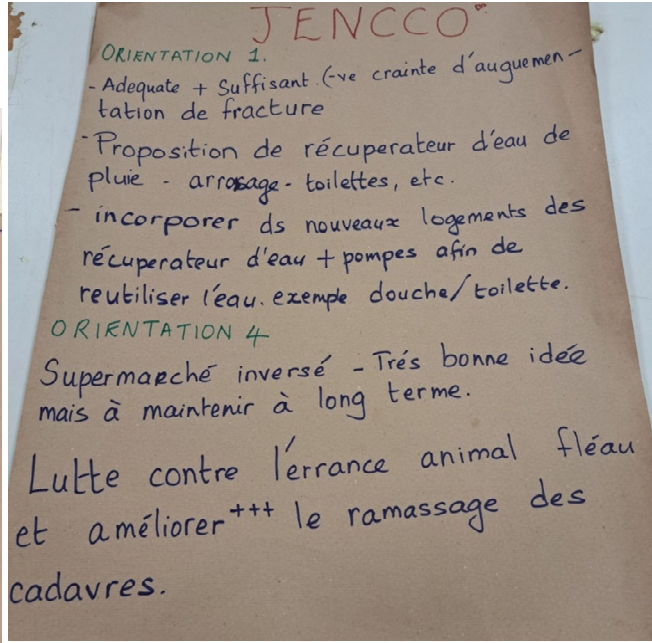 JENCCO
ORIENTATION 1.
- Adequate + Suffisant. (-ve crainte d'auguemen-
tation de fracture
- Proposition de récuperateur d'eau de
pluie - arrosage - toilettes, etc.
- incorporer ds nouveaux logements des
récuperateur d'eau + pompes afin de
reutiliser l'eau. exemple douche/toilette.
ORIENTATION 4
Supermarché inversé - Trés bonne idée
mais à maintenir à long terme.
Lutte contre l'errance animal fléau
et améliorer +++ le ramassage des
cadavres.